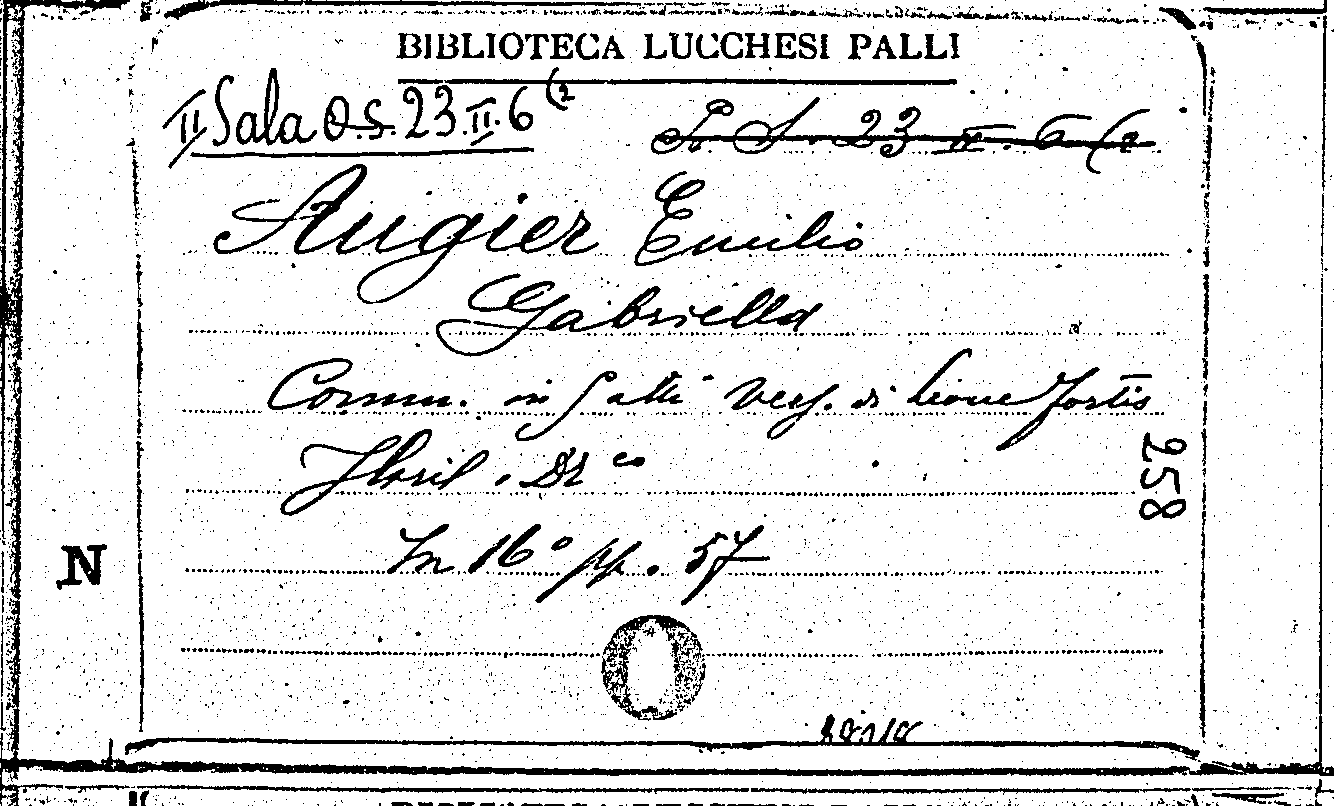 BIBLIOTECA LUCCHESI PALLI
II Sala O.S. 23.II.6 (2
P. S. 23 II. 6 (2
Augier Emilio
Gabriella
Comm. in 5 atti Vers. di Leone Fortis
Floril. Dr co
258
In 16° pp. 57
N